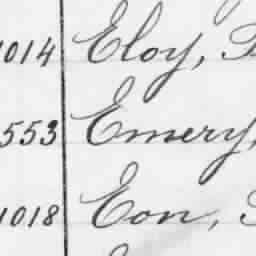 1014 Eloy,
553 Emery,
1018 Eon,